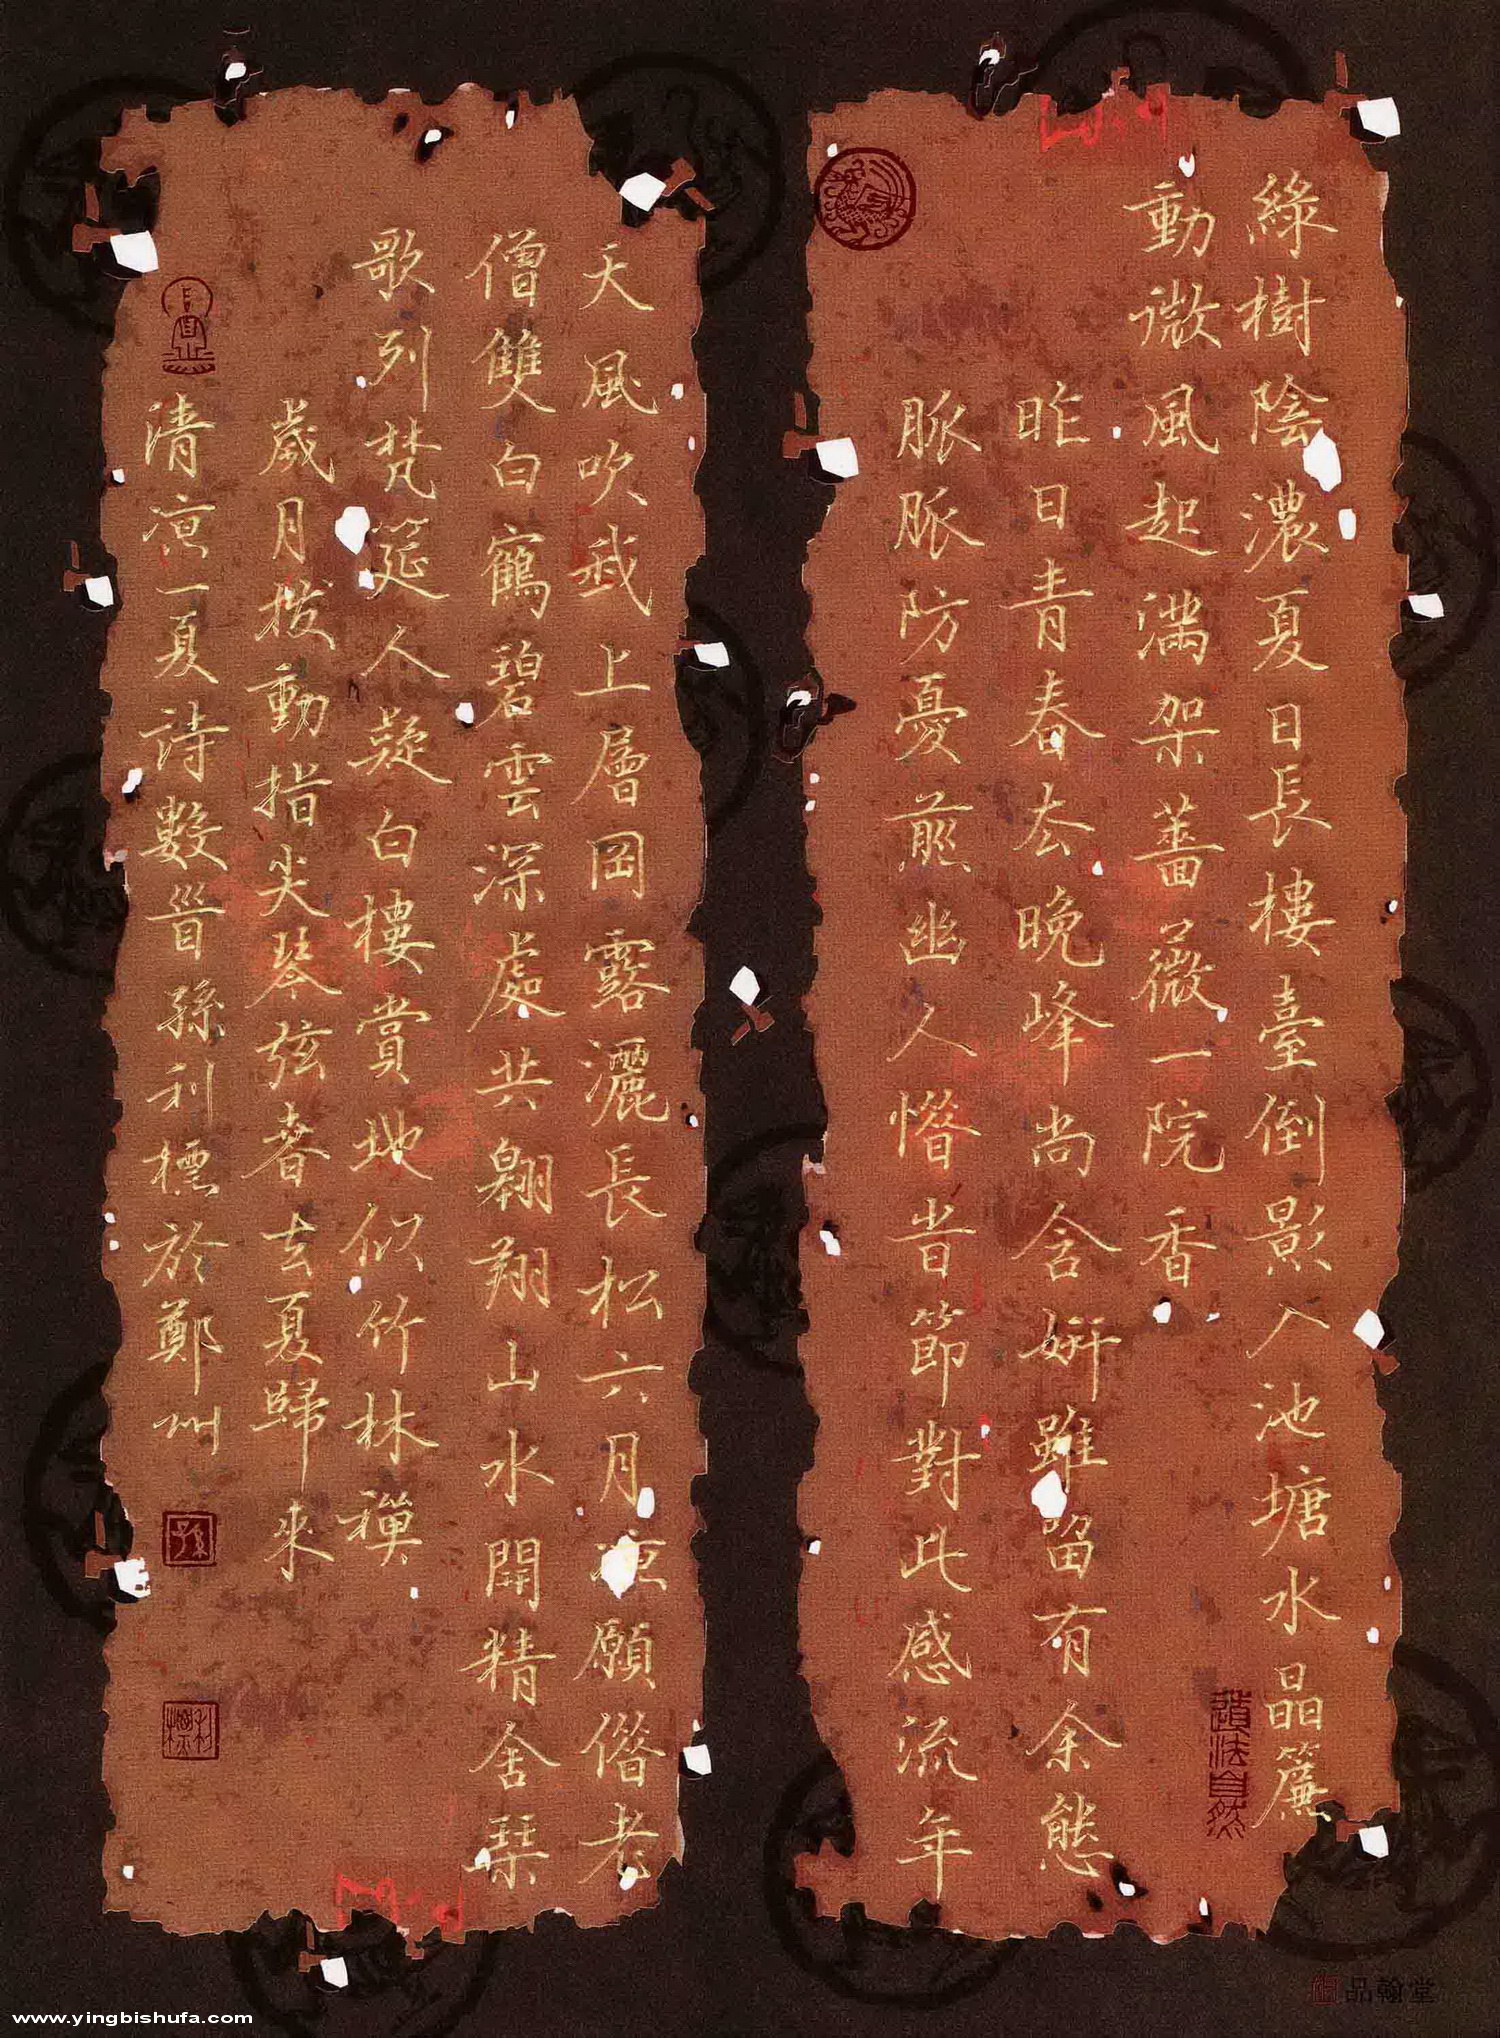 綠樹陰濃夏日長樓臺倒影入池塘水晶簾
動微風起滿架薔薇一院香
昨日青春厺晚峰尚含妍雖留有余態
脈脈防憂煎幽人惜旹節對此感流年
道法自然
天風吹我上層岡露灑長松六月凉願借老
僧雙白鶴碧雲深處共翱翔山水開精舍琹
歌列梵筵人疑白樓賞地似竹林禪
歲月撥動指尖琴弦春去夏歸來
清凉一夏詩數首孫利標於鄭州
孫
利標
品翰堂
www.yingbishufa.com